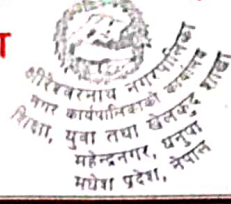 क्षीरेश्वरनाथ नगरपालिका
नगर कार्यपालिकाको कार्यालय
शिक्षा, युवा तथा खेलकुद शाखा
महेन्द्रनगर, धनुषा
मधेश प्रदेश, नेपाल